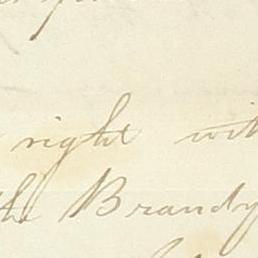 right with
the Brandy